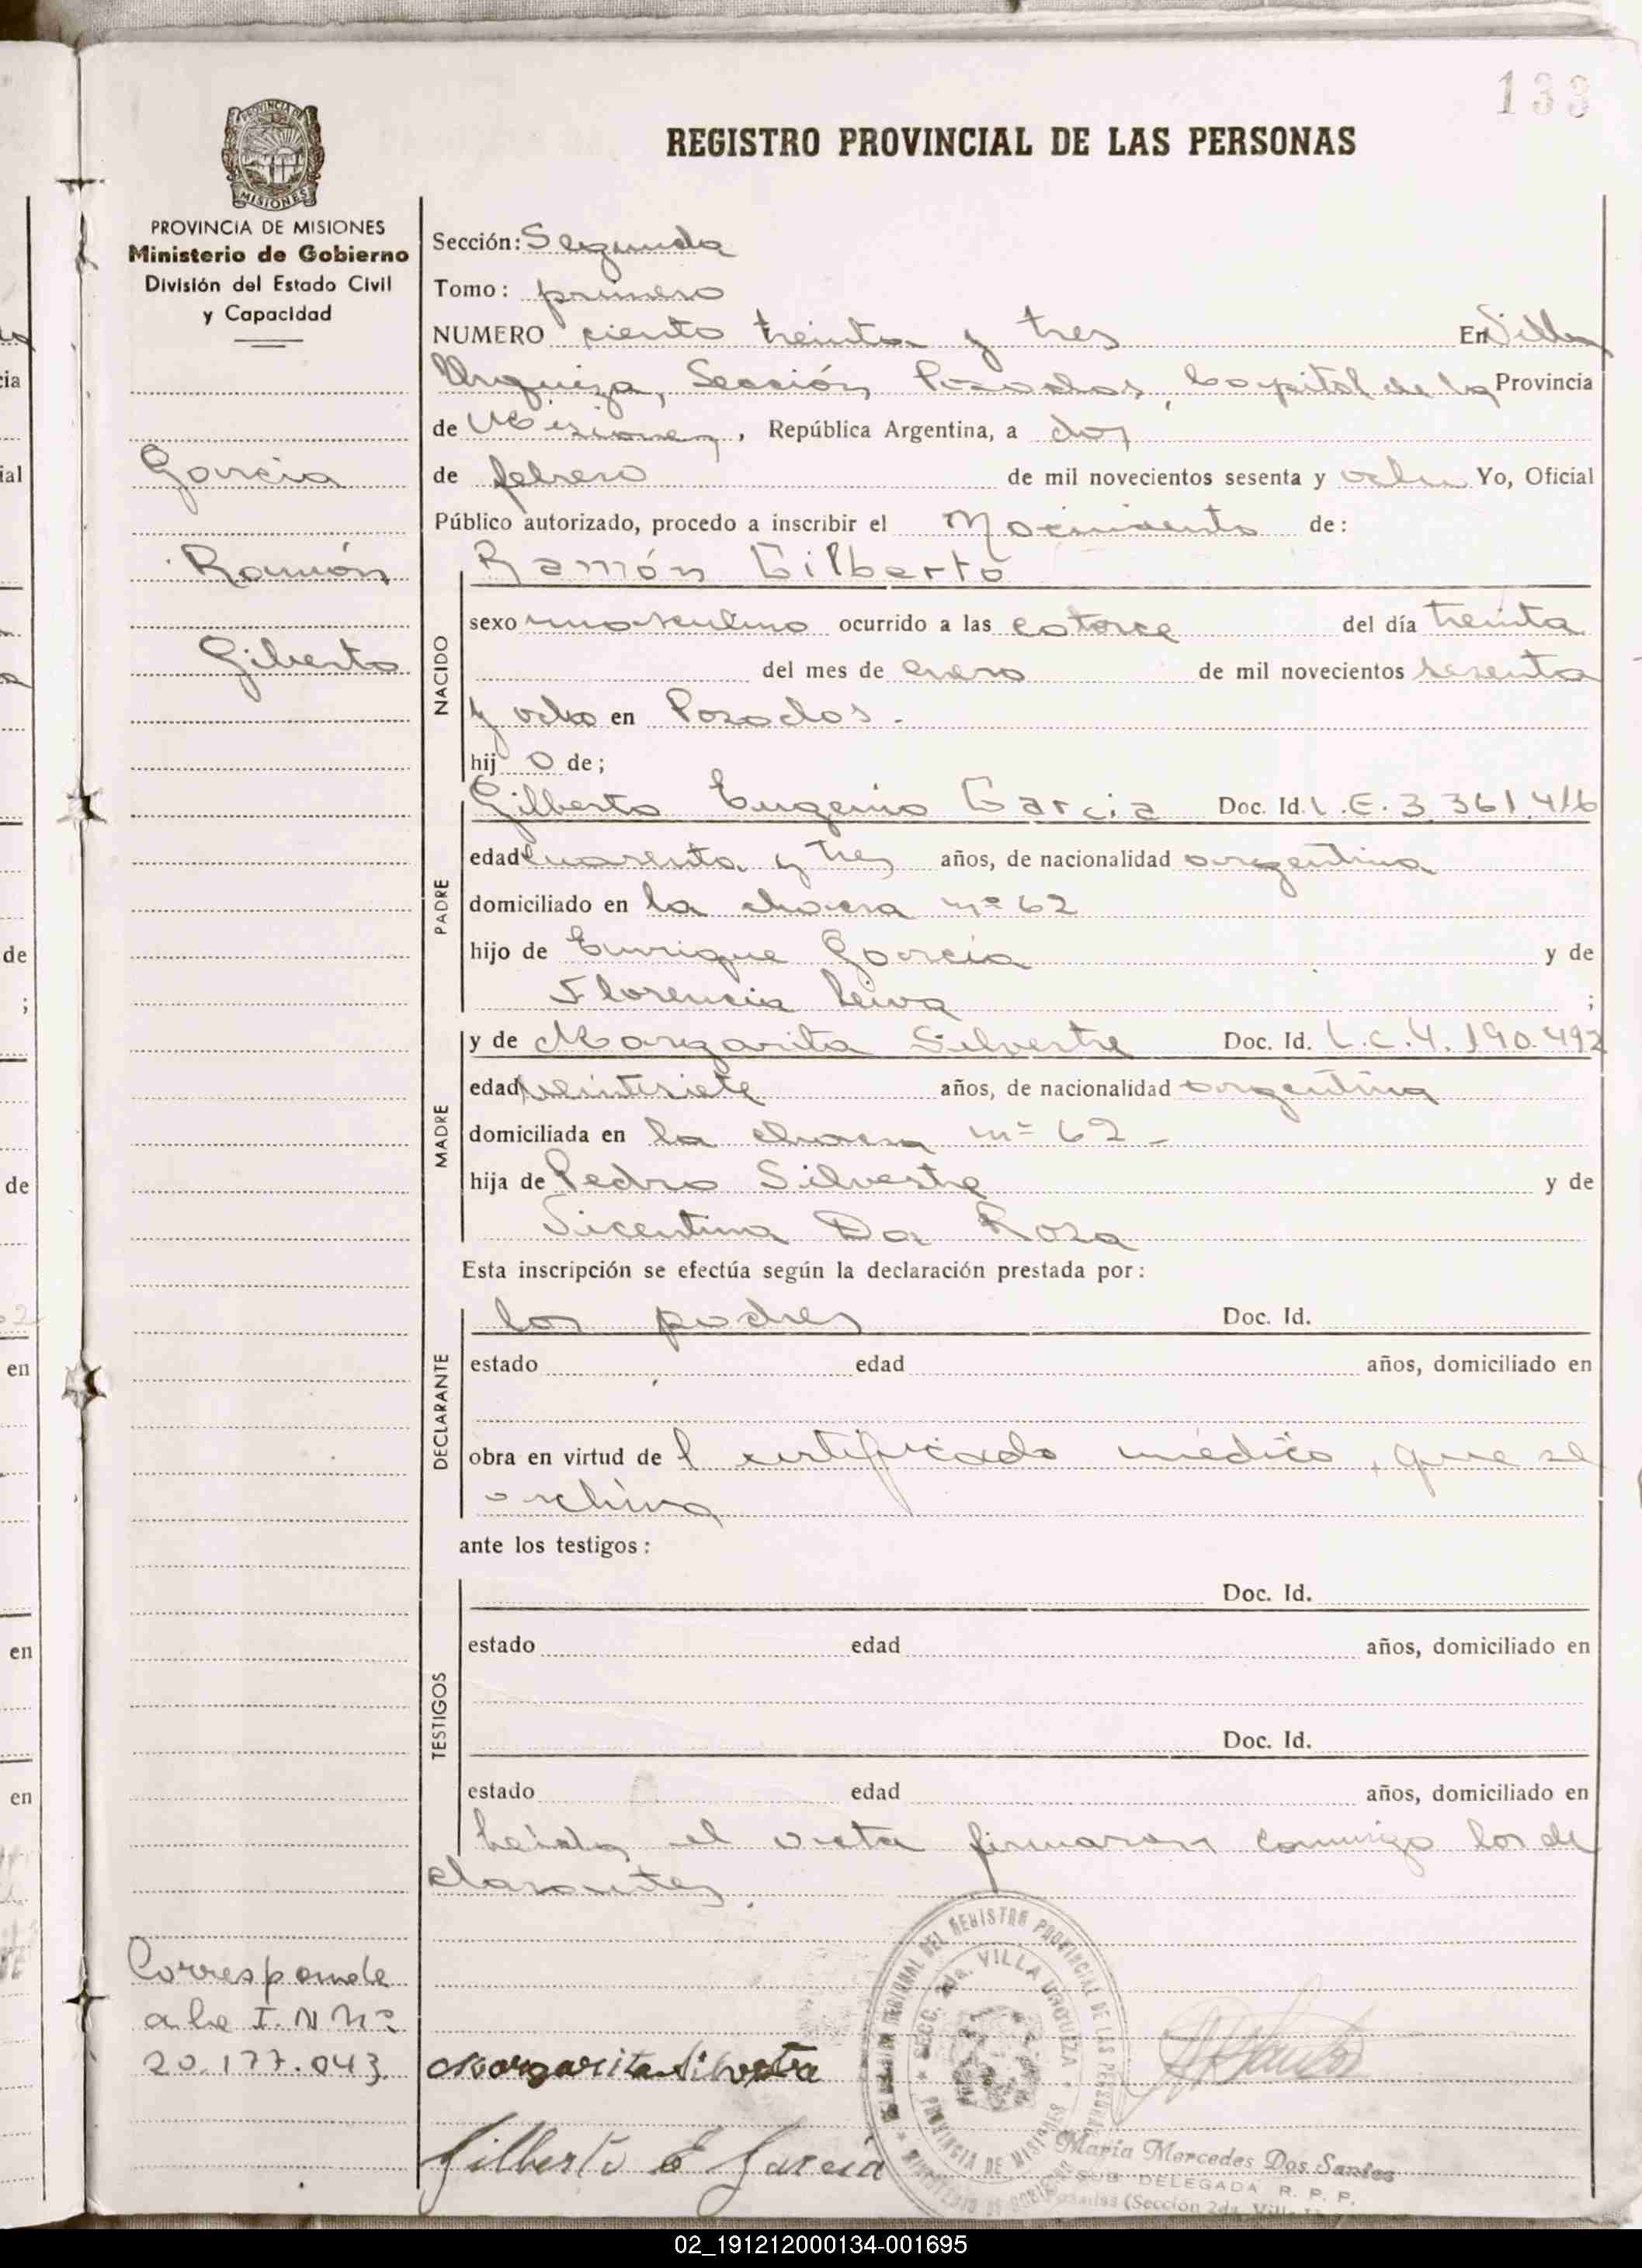 133
REGISTRO PROVINCIAL DE LAS PERSONAS
PROVINCIA DE MISIONES
PROVINCIA DE MISIONES
Ministerio de Gobierno
División del Estado Civil
y Capacidad
García
Ramón
Gilberto
Sección: Segunda
Tomo: primero
NUMERO ciento treinta y tres En Villa
Urquiza, Sección Posadas, Capital de la Provincia
de Misiones, República Argentina, a dos
de febrero de mil novecientos sesenta y ocho Yo, Oficial
Público autorizado, procedo a inscribir el Nacimiento de:
Ramón Gilberto
NACIDO
sexo masculino ocurrido a las catorce del día treinta
del mes de enero de mil novecientos sesenta
y ocho en Posadas.
hij o de;
PADRE
Gilberto Eugenio Garcia Doc. Id. L.E. 3.361.416
edad cuarenta y tres años, de nacionalidad argentina
domiciliado en la chacra nº 62
hijo de Enrique García y de
Florencia Leiva ;
MADRE
y de Margarita Silvestre Doc. Id. L.C. 4.190.492
edad veintisiete años, de nacionalidad argentina
domiciliada en la chacra nº 62 -
hija de Pedro Silvestre y de
Da Rosa
Esta inscripción se efectúa según la declaración prestada por:
DECLARANTE
los padres Doc. Id.
estado edad años, domiciliado en
obra en virtud de l certificado médico, que se
archiva
ante los testigos:
TESTIGOS
Doc. Id.
estado edad años, domiciliado en
Doc. Id.
estado edad años, domiciliado en
Leída el acta firmaron conmigo los de
clarantes.
Corresponde
a la I. N Nº
20.177.043
Margarita Silvestre
Gilberto E García
DEL REGISTRO PROVINCIAL DE LAS PERSONAS
SECC. 2da. VILLA URQUIZA
PROVINCIA DE MISIONES
MINISTERIO DE GOBIERNO
María Mercedes Dos Santos
SUB DELEGADA R. P. P.
Posadas (Sección 2da.
02_191212000134-001695